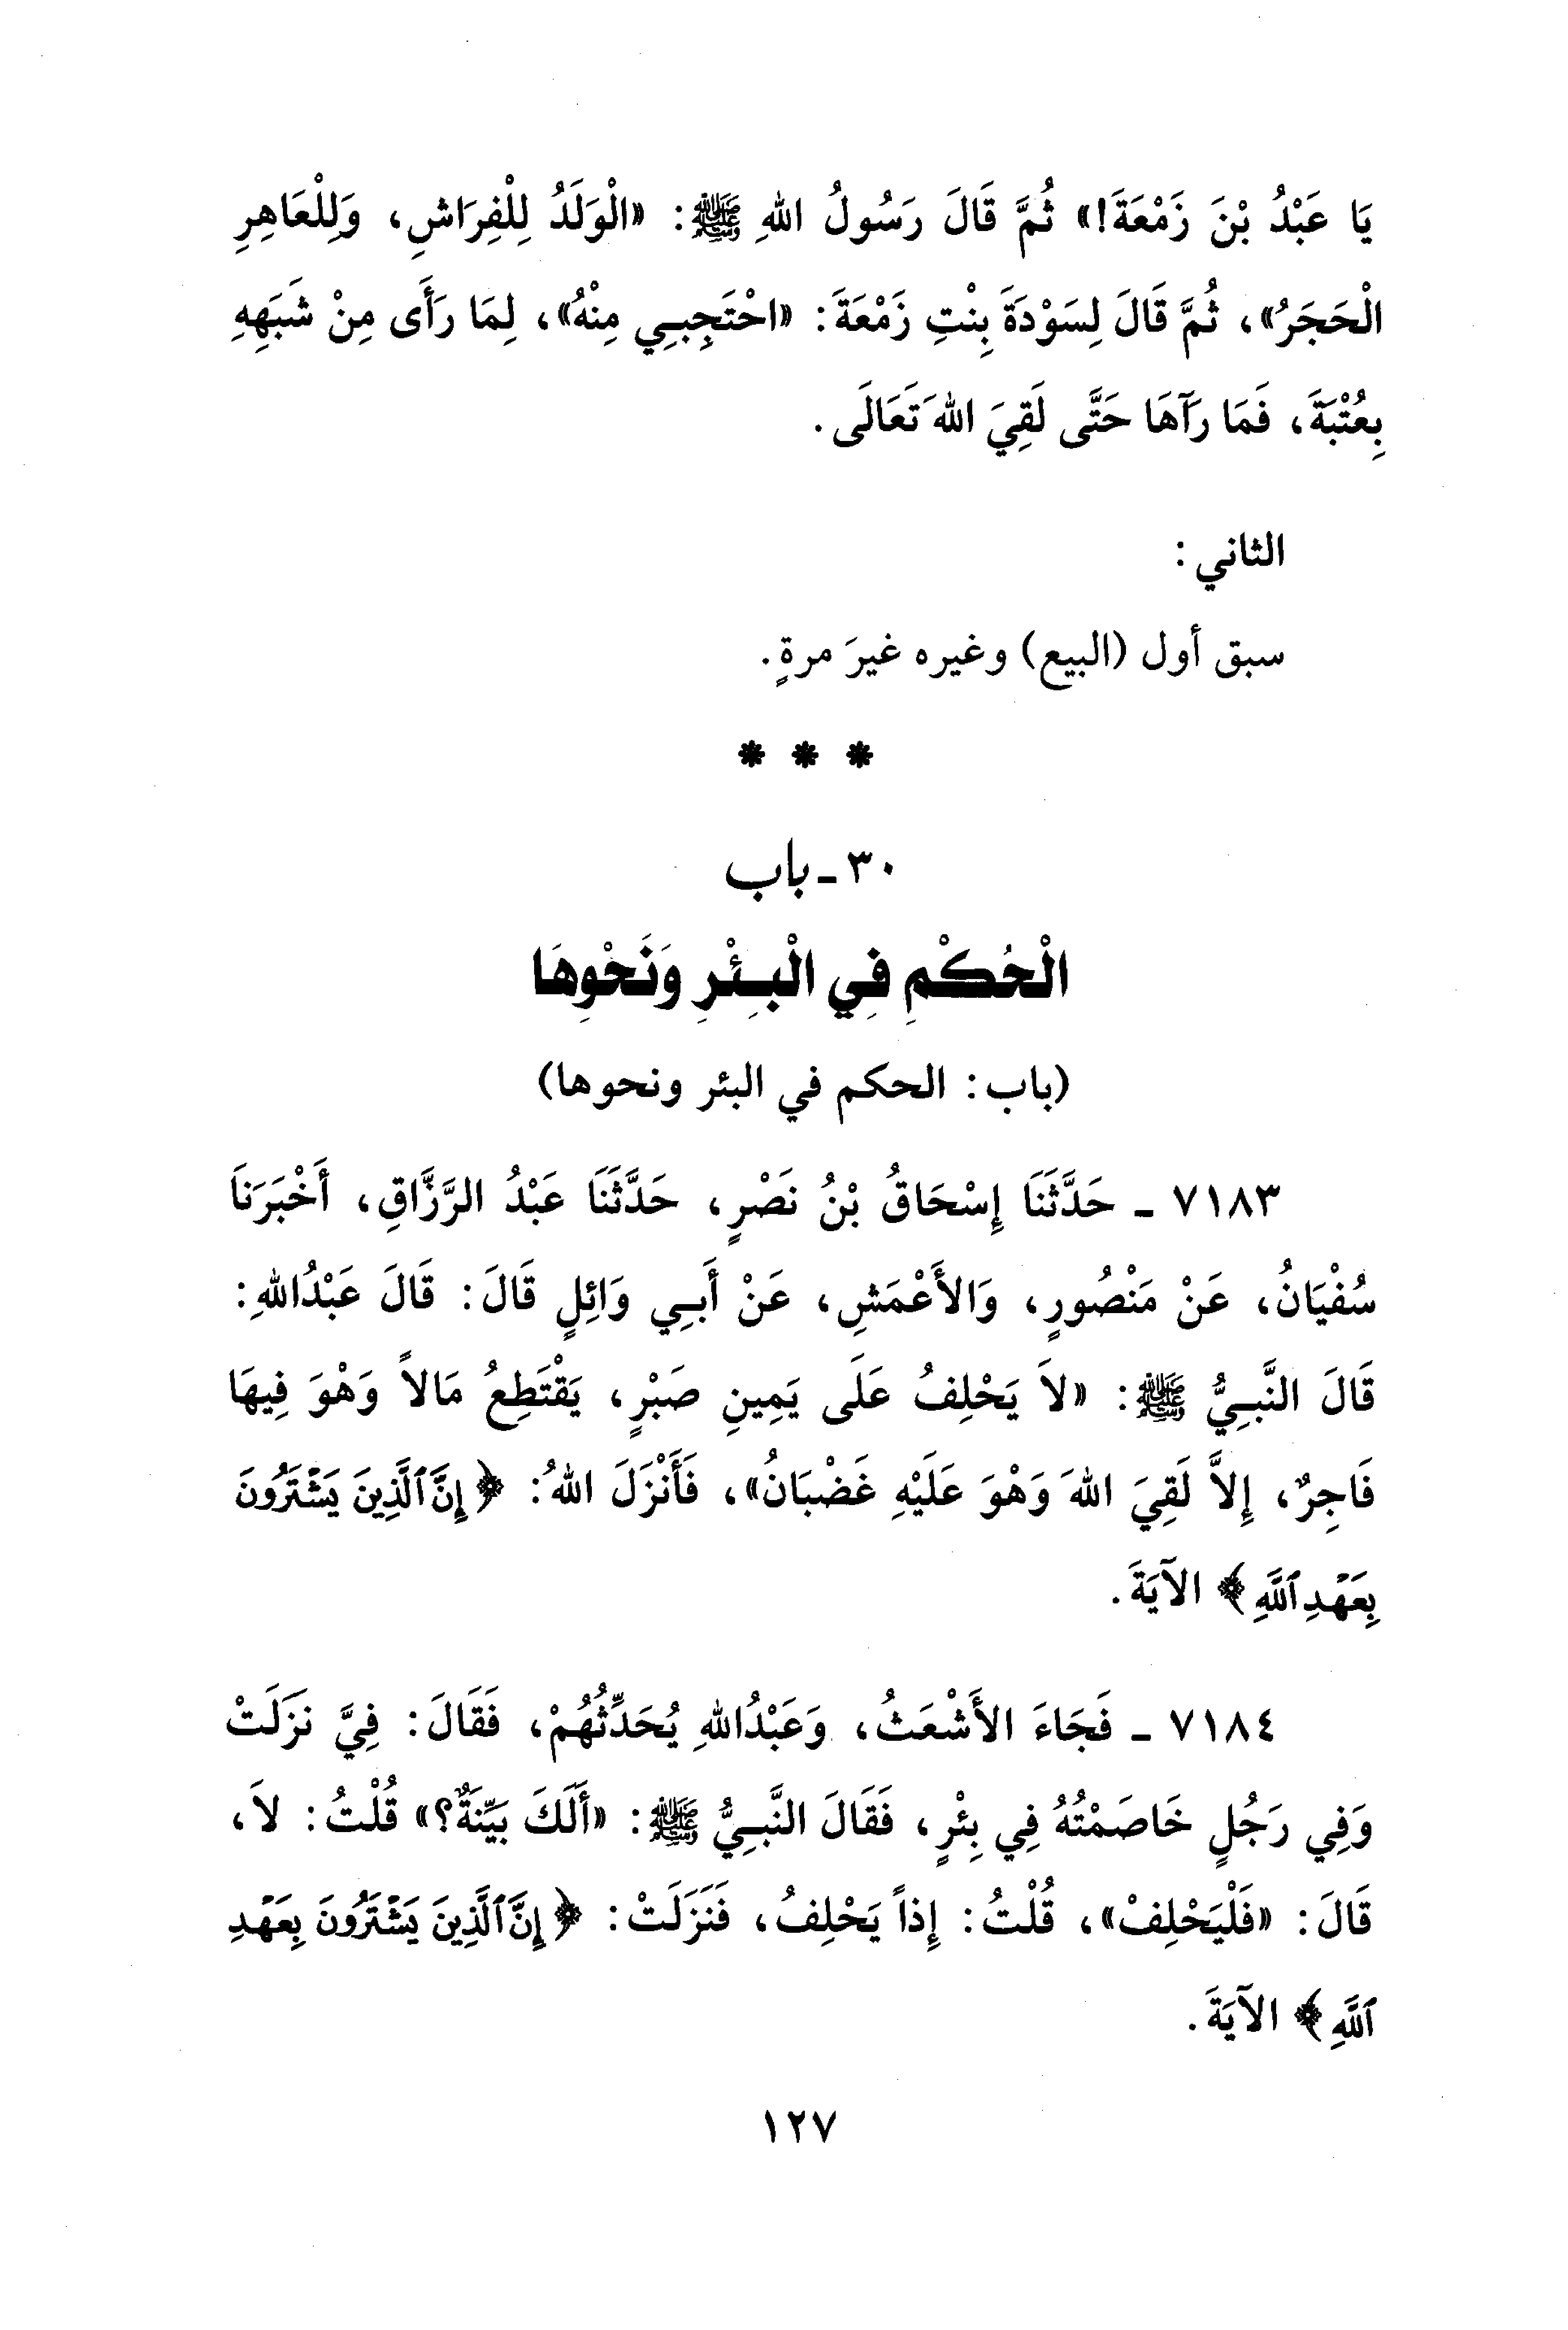 يَا عَبْدُ بْنَ زَمْعَةَ!» ثُمَّ قَالَ رَسُولُ اللهِ ﷺ: «الْوَلَدُ لِلْفِرَاشِ، وَلِلْعَاهِرِ
الْحَجَرُ»، ثُمَّ قَالَ لِسَوْدَةَ بِنْتِ زَمْعَةَ: «احْتَجِبِي مِنْهُ»، لِمَا رَأَى مِنْ شَبَهِهِ
بِعُتْبَةَ، فَمَا رَآهَا حَتَّى لَقِيَ اللهَ تَعَالَى.
الثاني:
سبق أول (البيع) وغيره غيرَ مرةٍ.
* * *
٣٠ - باب
الْحُكْمِ فِي الْبِئْرِ وَنَحْوِهَا
(باب: الحكم في البئر ونحوها)
٧١٨٣ - حَدَّثَنَا إِسْحَاقُ بْنُ نَصْرٍ، حَدَّثَنَا عَبْدُ الرَّزَّاقِ، أَخْبَرَنَا
سُفْيَانُ، عَنْ مَنْصُورٍ، وَالأَعْمَشِ، عَنْ أَبِي وَائِلٍ قَالَ: قَالَ عَبْدُاللهِ:
قَالَ النَّبِيُّ ﷺ: «لاَ يَحْلِفُ عَلَى يَمِينِ صَبْرٍ، يَقْتَطِعُ مَالاً وَهْوَ فِيهَا
فَاجِرٌ، إِلاَّ لَقِيَ اللهَ وَهْوَ عَلَيْهِ غَضْبَانُ»، فَأَنْزَلَ اللهُ: ﴿إِنَّ ٱلَّذِينَ يَشْتَرُونَ
بِعَهْدِ ٱللَّهِ﴾ الآيَةَ.
٧١٨٤ - فَجَاءَ الأَشْعَثُ، وَعَبْدُاللهِ يُحَدِّثُهُمْ، فَقَالَ: فِيَّ نَزَلَتْ
وَفِي رَجُلٍ خَاصَمْتُهُ فِي بِئْرٍ، فَقَالَ النَّبِيُّ ﷺ: «أَلَكَ بَيِّنَةٌ؟» قُلْتُ: لاَ،
قَالَ: «فَلْيَحْلِفْ»، قُلْتُ: إِذاً يَحْلِفُ، فَنَزَلَتْ: ﴿إِنَّ ٱلَّذِينَ يَشْتَرُونَ بِعَهْدِ
ٱللَّهِ﴾ الآيَةَ.
١٢٧